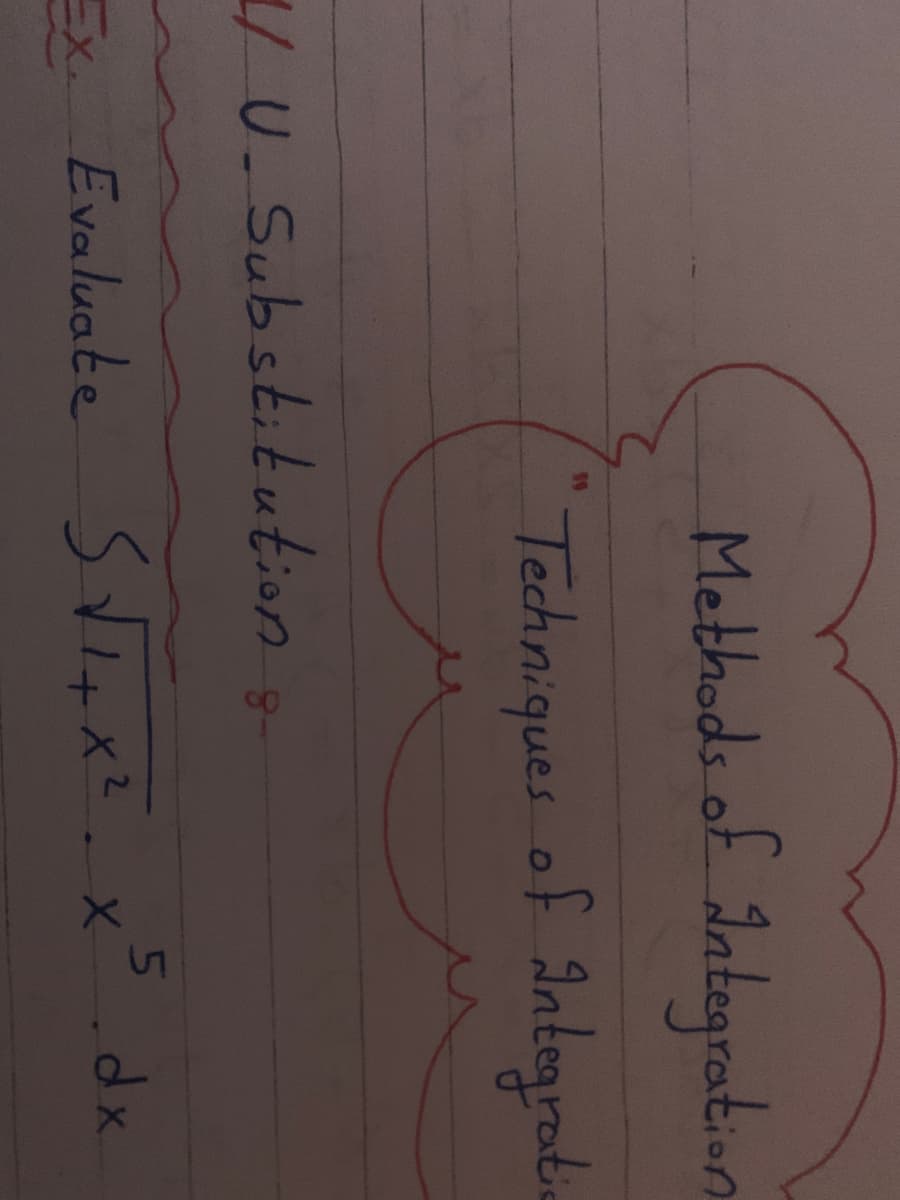 Methods of Integration
"Techniques of Integratio
1/ U- Substitution :-
Ex. Evaluate ∫ √1+x² . x⁵ . dx